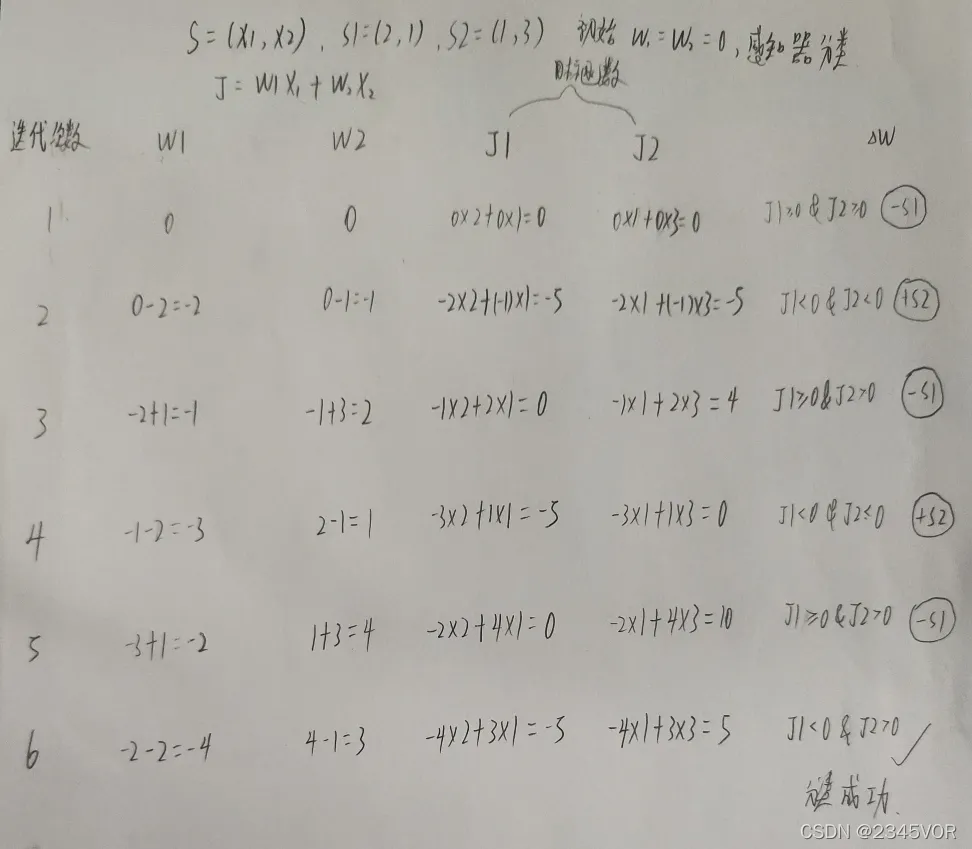 S=(X1,X2), S1=(2,1), S2=(1,3) 初始 W₁=W₂=0, 感知器分类
J=W1X₁+W₂X₂ 目标函数
迭代次数 W1 W2 J1 J2 ΔW
1 0 0 0×2+0×1=0 0×1+0×3=0 J1≥0 & J2≥0 -S1
2 0-2=-2 0-1=-1 -2×2+(-1)×1=-5 -2×1+(-1)×3=-5 J1<0 & J2<0 +S2
3 -2+1=-1 -1+3=2 -1×2+2×1=0 -1×1+2×3=4 J1≥0 & J2>0 -S1
4 -1-2=-3 2-1=1 -3×2+1×1=-5 -3×1+1×3=0 J1<0 & J2≤0 +S2
5 -3+1=-2 1+3=4 -2×2+4×1=0 -2×1+4×3=10 J1≥0 & J2>0 -S1
6 -2-2=-4 4-1=3 -4×2+3×1=-5 -4×1+3×3=5 J1<0 & J2>0 ✓
分类成功.
CSDN @2345VOR